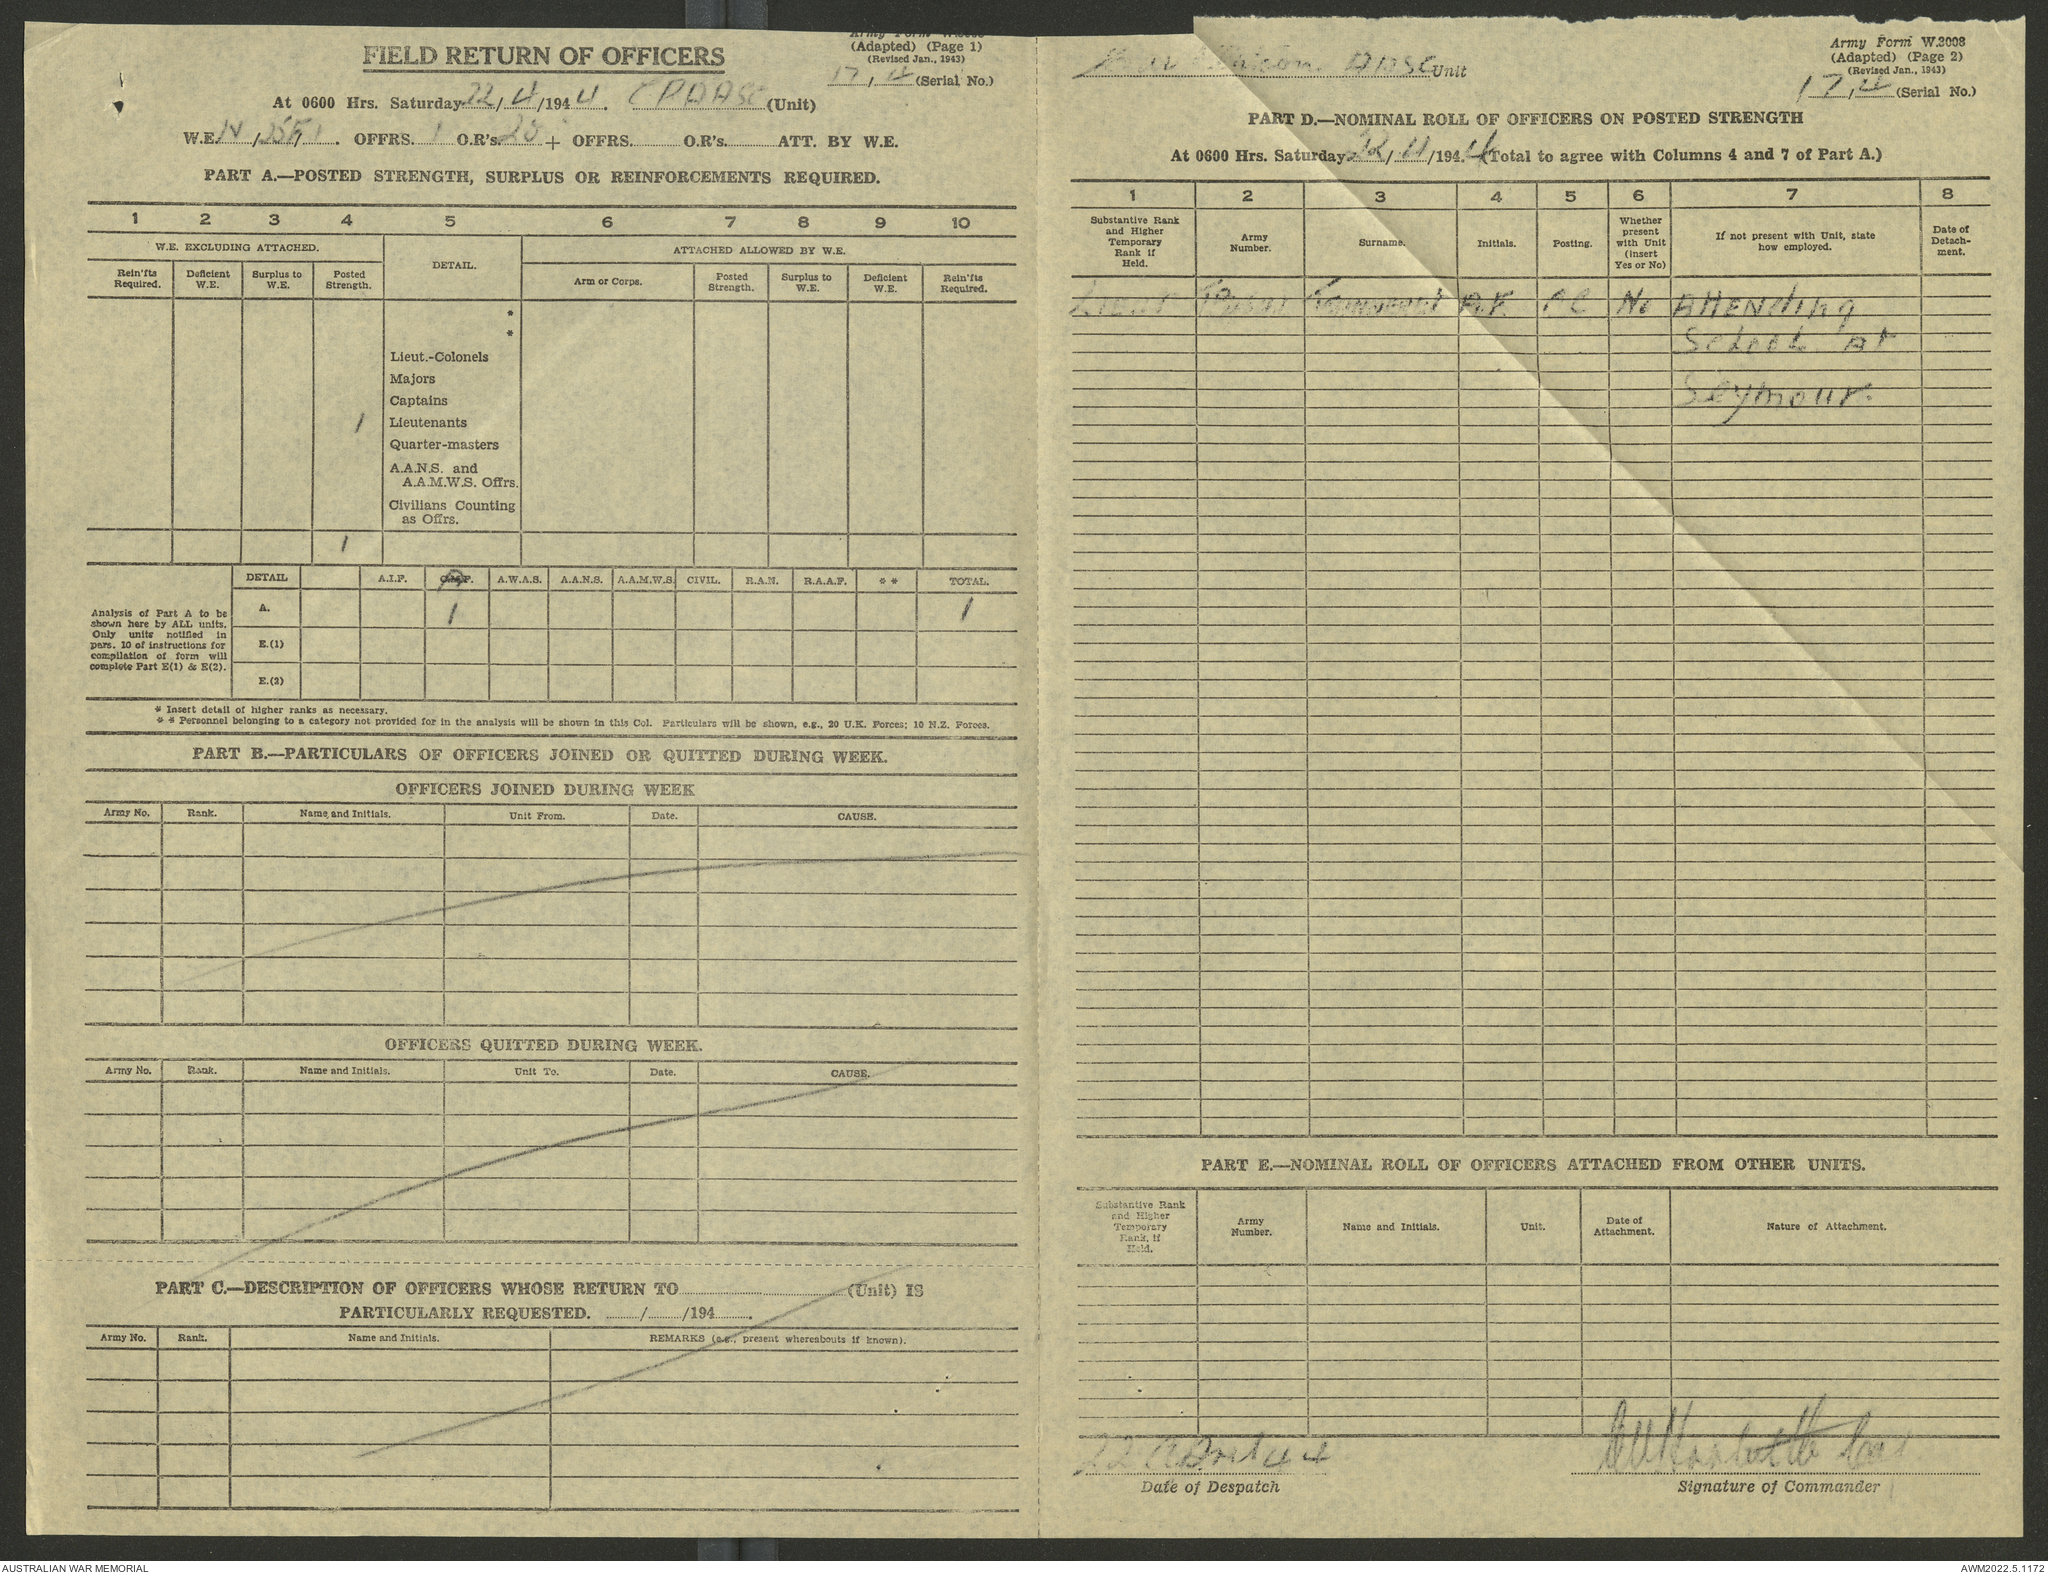 FIELD RETURN OF OFFICERS
(Adapted) (Page 1)
(Revised Jan., 1943)
17, 4 (Serial No.)
At 0600 Hrs. Saturday 22/4/1944. (Unit)
W.E. OFFRS. 1 O.R's. + OFFRS. O.R's. ATT. BY W.E.
PART A.—POSTED STRENGTH, SURPLUS OR REINFORCEMENTS REQUIRED.
1 2 3 4 5 6 7 8 9 10
W.E. EXCLUDING ATTACHED. DETAIL. ATTACHED ALLOWED BY W.E.
Rein'fts Required. Deficient W.E. Surplus to W.E. Posted Strength. Arm or Corps. Posted Strength. Surplus to W.E. Deficient W.E. Rein'fts Required.
*
*
Lieut.-Colonels
Majors
Captains
1 Lieutenants
Quarter-masters
A.A.N.S. and
A.A.M.W.S. Offrs.
Civilians Counting
as Offrs.
1
DETAIL A.I.F. C.M.F. A.W.A.S. A.A.N.S. A.A.M.W.S. CIVIL. R.A.N. R.A.A.F. * * TOTAL.
Analysis of Part A to be
shown here by ALL units.
Only units notified in
para. 10 of instructions for
compilation of form will
complete Part E(1) & E(2).
A. 1 1
E.(1)
E.(2)
* Insert detail of higher ranks as necessary.
* * Personnel belonging to a category not provided for in the analysis will be shown in this Col. Particulars will be shown, e.g., 20 U.K. Forces; 10 N.Z. Forces.
PART B.—PARTICULARS OF OFFICERS JOINED OR QUITTED DURING WEEK.
OFFICERS JOINED DURING WEEK
Army No. Rank. Name and Initials. Unit From. Date. CAUSE.
OFFICERS QUITTED DURING WEEK.
Army No. Rank. Name and Initials. Unit To. Date. CAUSE.
PART C.—DESCRIPTION OF OFFICERS WHOSE RETURN TO (Unit) IS
PARTICULARLY REQUESTED. / /194 .
Army No. Rank. Name and Initials. REMARKS (e.g., present whereabouts if known).
AASC Unit
Army Form W.3008
(Adapted) (Page 2)
(Revised Jan., 1943)
17, 4 (Serial No.)
PART D.—NOMINAL ROLL OF OFFICERS ON POSTED STRENGTH
At 0600 Hrs. Saturday 22/4/1944 (Total to agree with Columns 4 and 7 of Part A.)
1 2 3 4 5 6 7 8
Substantive Rank and Higher Temporary Rank if Held. Army Number. Surname. Initials. Posting. Whether present with Unit (insert Yes or No) If not present with Unit, state how employed. Date of Detachment.
Lieut No Attending
School at
Seymour.
PART E.—NOMINAL ROLL OF OFFICERS ATTACHED FROM OTHER UNITS.
Substantive Rank and Higher Temporary Rank, if Held. Army Number. Name and Initials. Unit. Date of Attachment. Nature of Attachment.
22 April 44
Date of Despatch
Signature of Commander
AUSTRALIAN WAR MEMORIAL
AWM2022.5.1172